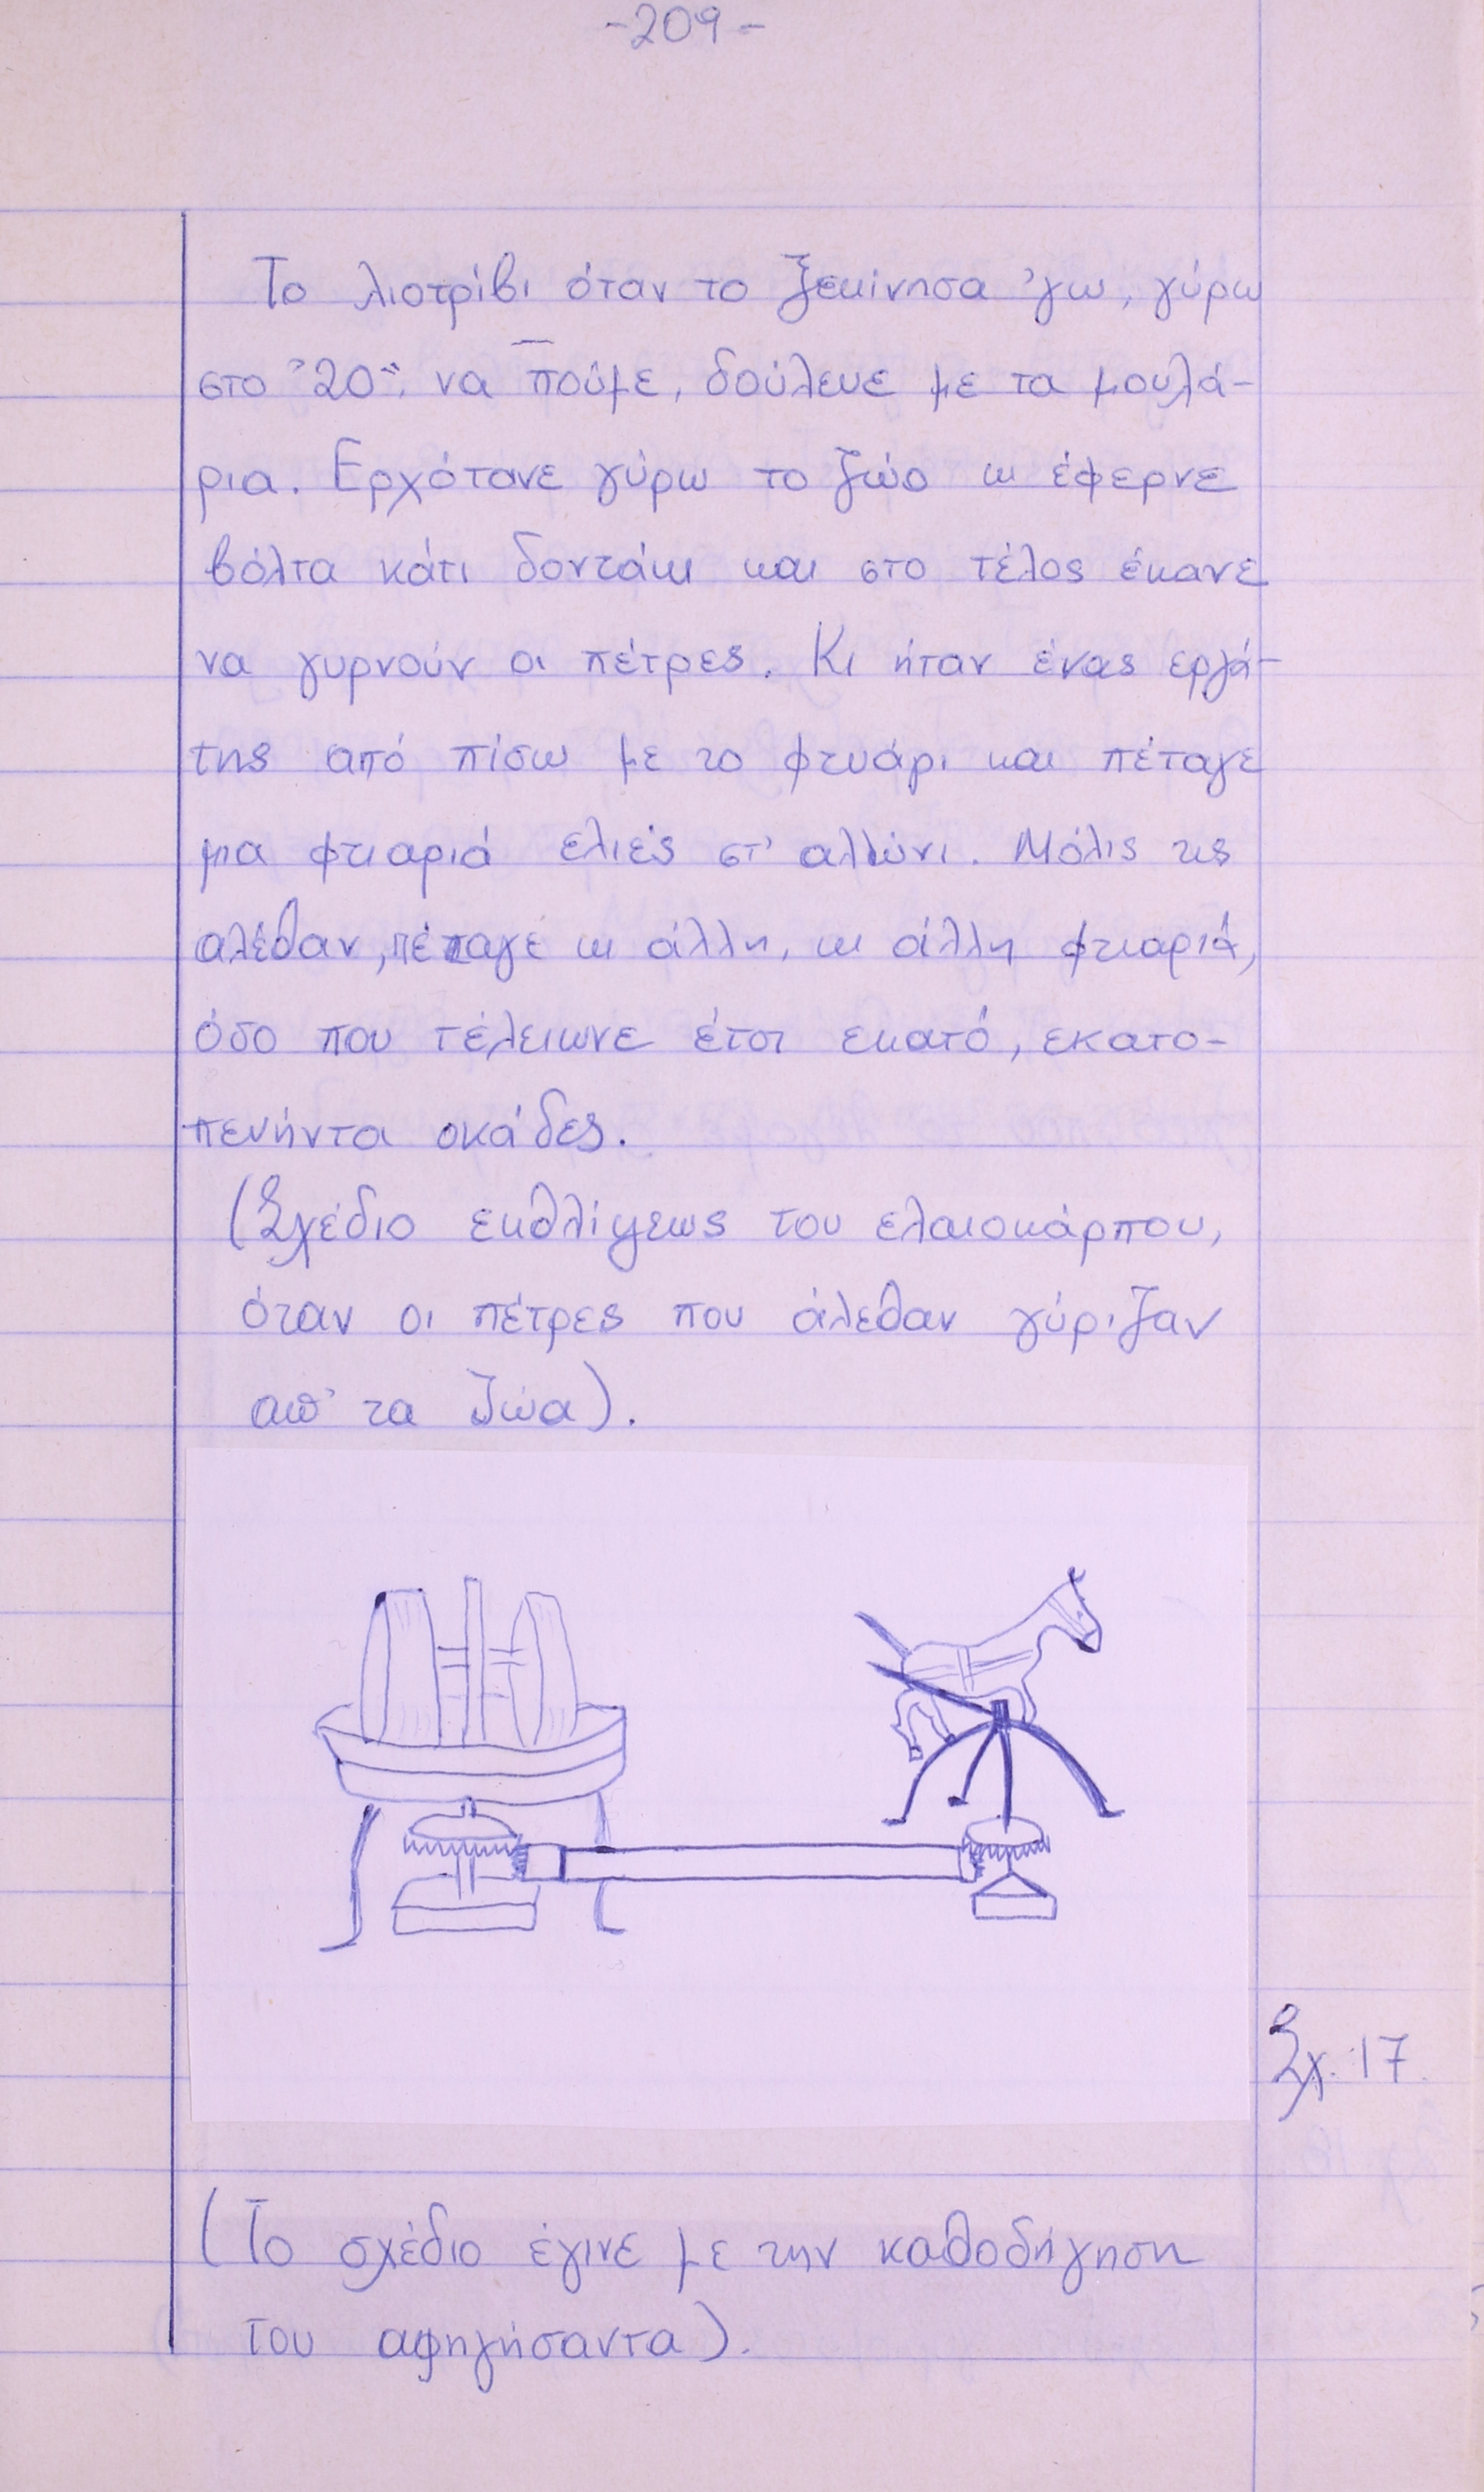 -209-
Το λιοτρίβι όταν το ξεκίνησα 'γω, γύρω
στο "20", να πούμε, δούλευε με τα μουλά-
ρια. Ερχότανε γύρω το ζώο κι έφερνε
βόλτα κάτι δοντάκι και στο τέλος έκανε
να γυρνούν οι πέτρες. Κι ήταν ένας εργά-
της από πίσω με το φτυάρι και πέταγε
μια φτιαριά ελιές στ' αλώνι. Μόλις τις
αλέθαν, πέταγε κι άλλη, κι άλλη φτιαριά,
όσο που τέλειωνε έτσι εκατό, εκατο-
πενήντα οκάδες.
(Σχέδιο εκθλίψεως του ελαιοκάρπου,
όταν οι πέτρες που άλεθαν γύριζαν
απ' τα ζώα).
Σχ. 17
(Το σχέδιο έγινε με την καθοδήγηση
του αφηγήσαντα).